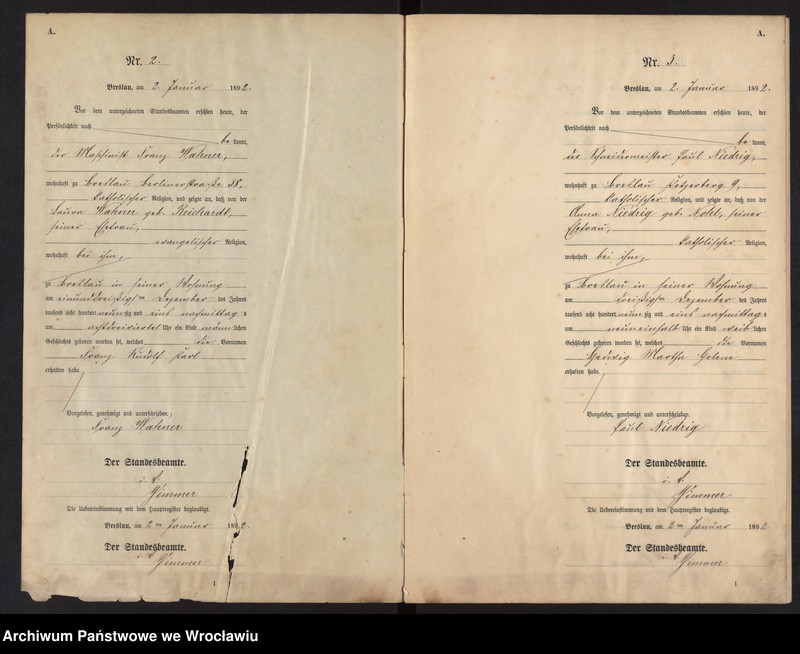 A.
Nr. 2.
Breslau, am 2. Januar 1892.
Vor dem unterzeichneten Standesbeamten erschien heute, der
Persönlichkeit nach
be kannt,
der Maschinist Franz Wahner,
wohnhaft zu Breslau Berlinerstraße 48,
katholischer Religion, und zeigte an, daß von der
Laura Wahner geb. Reichardt,
seiner Ehefrau,
evangelischer Religion,
wohnhaft bei ihm,
zu Breslau in seiner Wohnung
am einunddreißigsten Dezember des Jahres
tausend acht hundert neunzig und eins nachmittags
um achtdreiviertel Uhr ein Kind männlichen
Geschlechts geboren worden sei, welches die Vornamen
Franz Rudolf Karl
erhalten habe.
Vorgelesen, genehmigt und unterschrieben,
Franz Wahner
Der Standesbeamte.
Die Uebereinstimmung mit dem Hauptregister beglaubigt.
Breslau, am 2ten Januar 1892.
Der Standesbeamte.
1
A.
Nr. 3.
Breslau, am 2. Januar 1892.
Vor dem unterzeichneten Standesbeamten erschien heute, der
Persönlichkeit nach
be kannt,
der Schneidermeister Paul Niedrig,
wohnhaft zu Breslau Ketzerberg 9,
katholischer Religion, und zeigte an, daß von der
Anna Niedrig geb. Nohl, seiner
Ehefrau,
katholischer Religion,
wohnhaft bei ihm,
zu Breslau in seiner Wohnung
am dreißigsten Dezember des Jahres
tausend acht hundert neunzig und eins nachmittags
um neuneinhalb Uhr ein Kind weiblichen
Geschlechts geboren worden sei, welches die Vornamen
Hedwig Martha Helene
erhalten habe.
Vorgelesen, genehmigt und unterschrieben.
Paul Niedrig
Der Standesbeamte.
Die Uebereinstimmung mit dem Hauptregister beglaubigt.
Breslau, am 2ten Januar 1892.
Der Standesbeamte.
1
Archiwum Państwowe we Wrocławiu